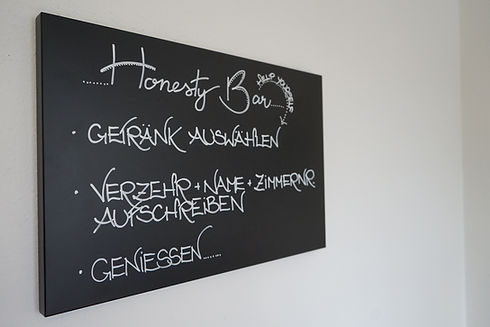 .....Honesty Bar.....
HELP YOURSELF
· GETRÄNK AUSWÄHLEN
· VERZEHR + NAME + ZIMMERNR.
AUFSCHREIBEN
· GENIESSEN.....